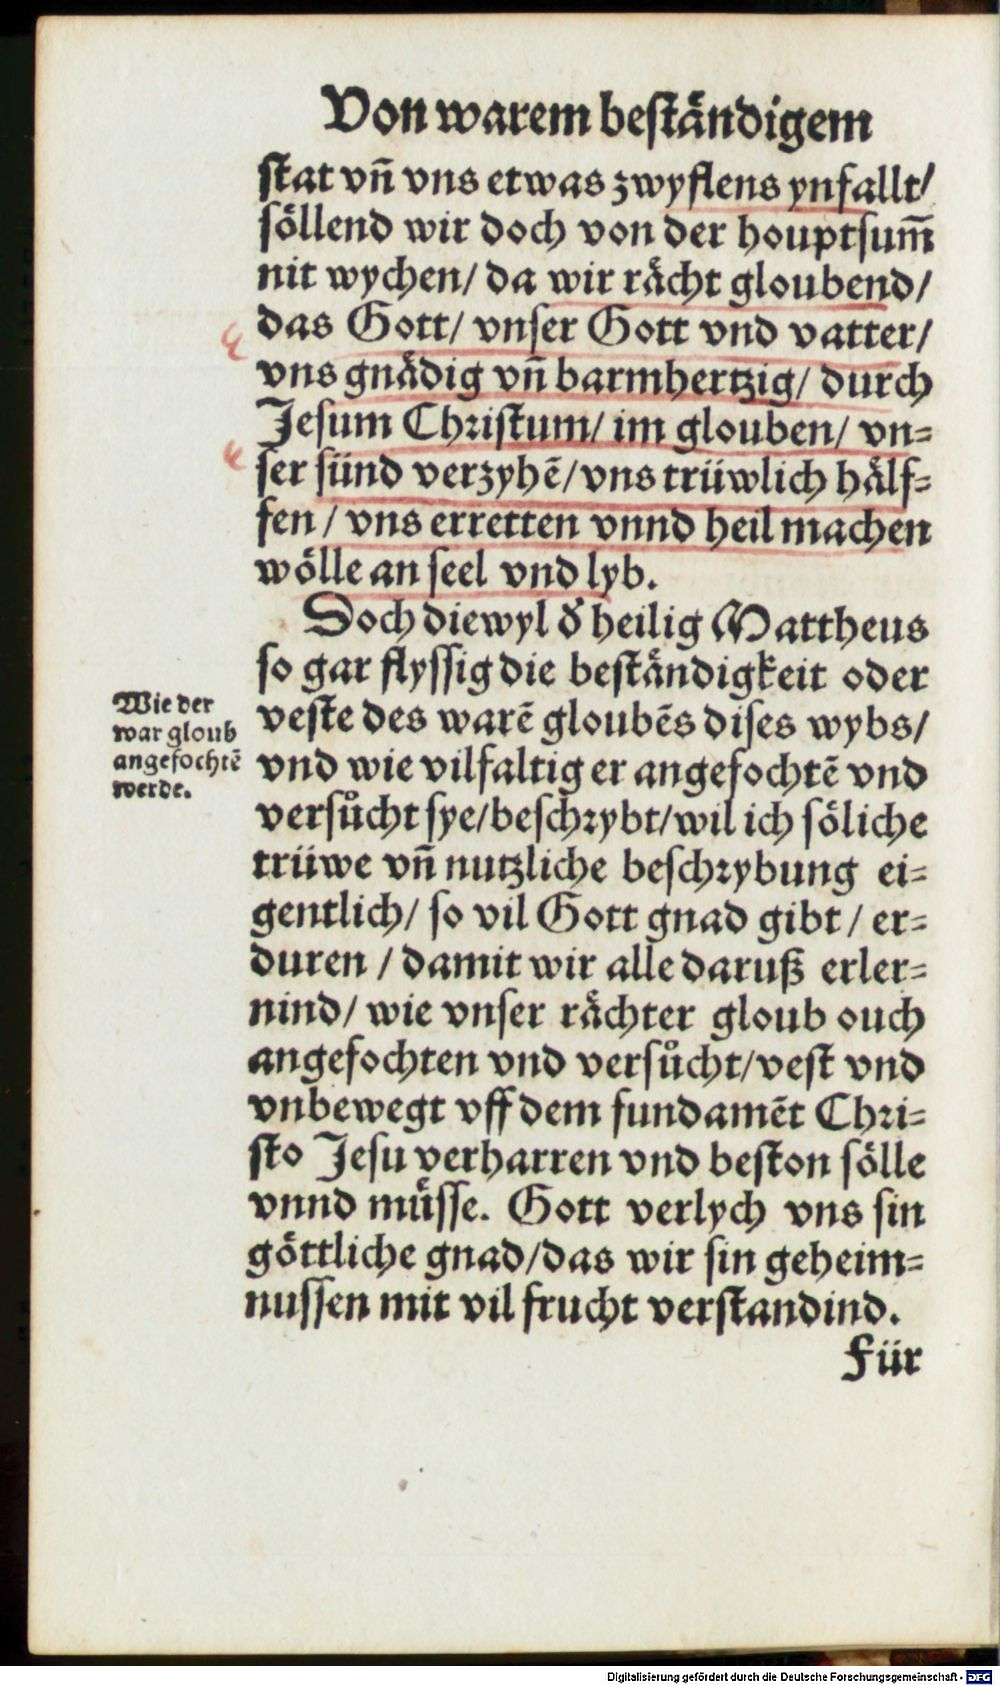 Von warem beständigem
stat vn̄ vns etwas zwyflens ynfallt/
söllend wir doch von der houptsum̄
nit wychen/ da wir rächt gloubend/
das Gott/ vnser Gott vnd vatter/
vns gnädig vn̄ barmhertzig/ durch
Jesum Christum/ im glouben/ vn=
ser sünd verzyhē/ vns trüwlich hälf=
fen/ vns erretten vnnd heil machen
wölle an seel vnd lyb.
Doch diewyl d' heilig Mattheus
so gar flyssig die beständigkeit oder
Wie der
war gloub
angefochtē
werde.
veste des warē gloubēs dises wybs/
vnd wie vilfaltig er angefochtē vnd
versůcht sye/ beschrybt/ wil ich söliche
trüwe vn̄ nutzliche beschrybung ei=
gentlich/ so vil Gott gnad gibt/ er=
duren/ damit wir alle daruß erler=
nind/ wie vnser rächter gloub ouch
angefochten vnd versůcht/ vest vnd
vnbewegt vff dem fundamēt Chri=
sto Jesu verharren vnd beston sölle
vnnd müsse. Gott verlych vns sin
göttliche gnad/ das wir sin geheim=
nussen mit vil frucht verstandind.
Für
Digitalisierung gefördert durch die Deutsche Forschungsgemeinschaft - DFG